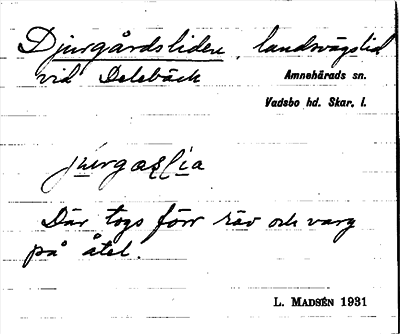 Djurgårdsliden, landsvägslid
vid Delebäck
Amnehärads sn.
Vadsbo hd. Skar. l.
Där togs förr räv och varg
på åtel.
L. MADSÉN 1931